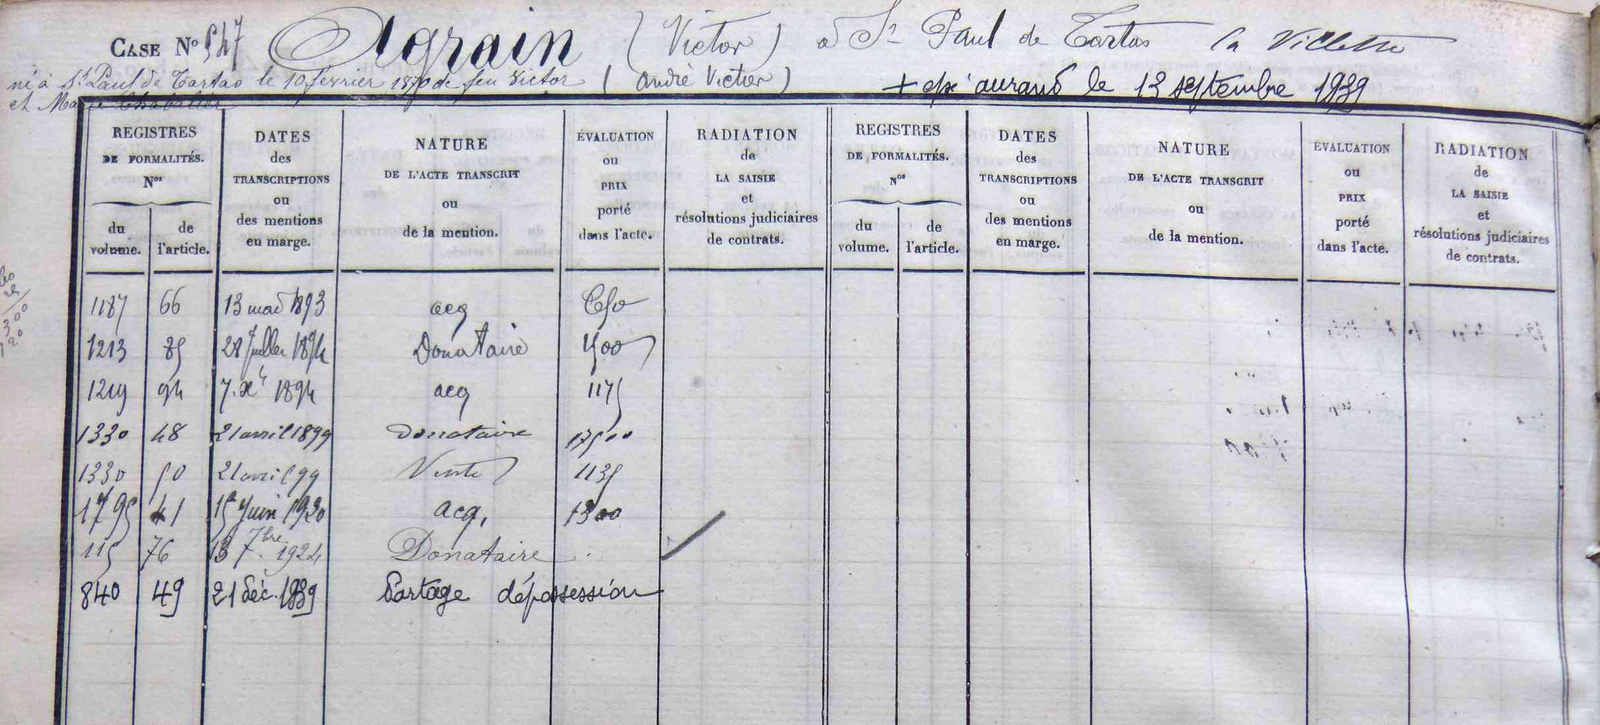 CASE N° 547 Agrain (Victor) à St Paul de Tartas la Villette
né à St Paul de Tartas le 10 février 1870 de feu Victor (André Victor) + après aurand le 13 septembre 1939
et Marie
REGISTRES DATES NATURE ÉVALUATION RADIATION REGISTRES DATES NATURE ÉVALUATION RADIATION
DE FORMALITÉS. des DE L'ACTE TRANSCRIT ou de DE FORMALITÉS. des DE L'ACTE TRANSCRIT ou de
Nos TRANSCRIPTIONS ou PRIX LA SAISIE Nos TRANSCRIPTIONS ou PRIX LA SAISIE
ou de la mention. porté et ou de la mention. porté et
du de des mentions dans l'acte. résolutions judiciaires du de des mentions dans l'acte. résolutions judiciaires
volume. l'article. en marge. de contrats. volume. l'article. en marge. de contrats.
1187 66 13 mai 1893 acq 650
1213 85 28 Juillet 1894 Donataire 1500
1219 94 7 Xe 1894 acq 1175
1330 48 21 avril 1899 Donataire 17500
1330 50 21 avril 99 Vente 1135
1795 41 15 Juin 1920 acq. 1300
115 76 13 7bre 1924 Donataire
840 49 21 Déc. 1939 Partage dépossession